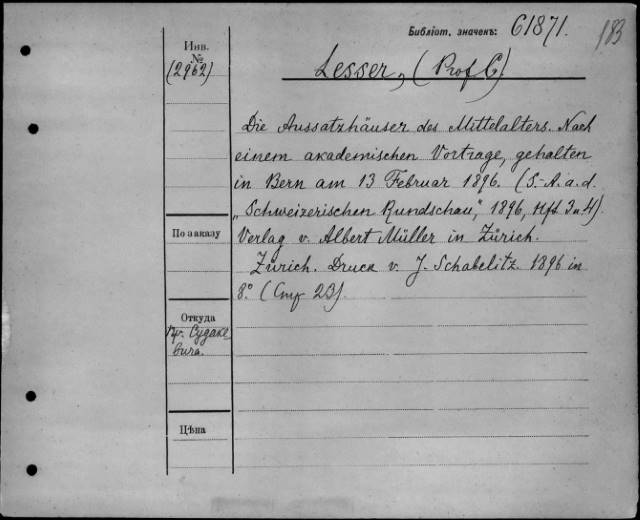 Библіот. значекъ: 61871.
183
Инв.
№
(2962)
Lesser, (Prof. E)
Die Aussatzhäuser des Mittelalters. Nach
einem akademischen Vortrage, gehalten
in Bern am 13 Februar 1896. (S.-A. a. d.
„Schweizerischen Rundschau“, 1896, Hft 3 u 4).
По заказу
Verlag v. Albert Müller in Zürich.
Zürich. Druck v. J. Schabelitz. 1896 in
8° (Стр 23).
Откуда
Пр. Судаке-
вича.
Цѣна